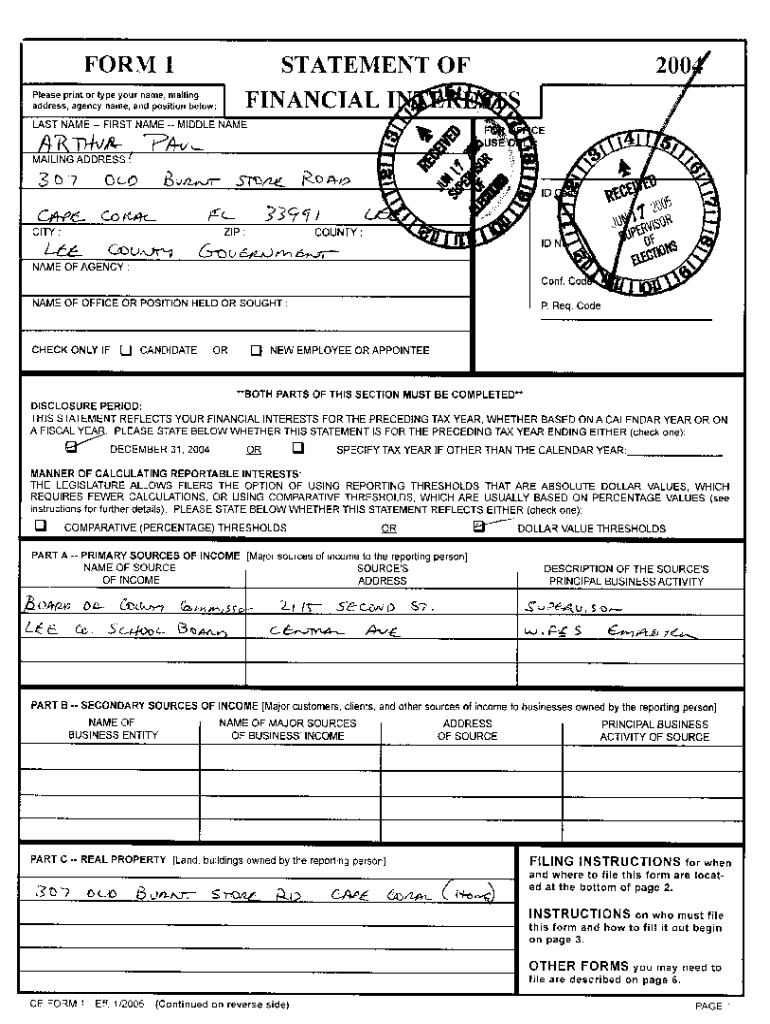 FORM 1 STATEMENT OF 2004
Please print or type your name, mailing
address, agency name, and position below:
FINANCIAL INTERESTS
LAST NAME -- FIRST NAME -- MIDDLE NAME
FOR OFFICE
USE
ARTHUR, PAUL
MAILING ADDRESS :
307 OLD BURNT STORE ROAD
RECEIVED
JUN 17
SUPERVISOR
OF
ELECTIONS
RECEIVED
JUN 17 2005
SUPERVISOR
OF
ELECTIONS
CAPE CORAL FL 33991 LEE
CITY : ZIP : COUNTY :
LEE COUNTY GOVERNMENT
NAME OF AGENCY :
ID
ID N
Conf. Code
NAME OF OFFICE OR POSITION HELD OR SOUGHT :
P. Req. Code
CHECK ONLY IF CANDIDATE OR NEW EMPLOYEE OR APPOINTEE
**BOTH PARTS OF THIS SECTION MUST BE COMPLETED**
DISCLOSURE PERIOD:
THIS STATEMENT REFLECTS YOUR FINANCIAL INTERESTS FOR THE PRECEDING TAX YEAR, WHETHER BASED ON A CALENDAR YEAR OR ON
A FISCAL YEAR. PLEASE STATE BELOW WHETHER THIS STATEMENT IS FOR THE PRECEDING TAX YEAR ENDING EITHER (check one):
DECEMBER 31, 2004 OR SPECIFY TAX YEAR IF OTHER THAN THE CALENDAR YEAR:
MANNER OF CALCULATING REPORTABLE INTERESTS:
THE LEGISLATURE ALLOWS FILERS THE OPTION OF USING REPORTING THRESHOLDS THAT ARE ABSOLUTE DOLLAR VALUES, WHICH
REQUIRES FEWER CALCULATIONS, OR USING COMPARATIVE THRESHOLDS, WHICH ARE USUALLY BASED ON PERCENTAGE VALUES (see
instructions for further details). PLEASE STATE BELOW WHETHER THIS STATEMENT REFLECTS EITHER (check one):
COMPARATIVE (PERCENTAGE) THRESHOLDS OR DOLLAR VALUE THRESHOLDS
PART A -- PRIMARY SOURCES OF INCOME [Major sources of income to the reporting person]
NAME OF SOURCE SOURCE'S DESCRIPTION OF THE SOURCE'S
OF INCOME ADDRESS PRINCIPAL BUSINESS ACTIVITY
BOARD OF County 2115 SECOND ST.
LEE Co. SCHOOL BOARD CENTRAL AVE WIFES
PART B -- SECONDARY SOURCES OF INCOME [Major customers, clients, and other sources of income to businesses owned by the reporting person]
NAME OF NAME OF MAJOR SOURCES ADDRESS PRINCIPAL BUSINESS
BUSINESS ENTITY OF BUSINESS' INCOME OF SOURCE ACTIVITY OF SOURCE
PART C -- REAL PROPERTY [Land, buildings owned by the reporting person]
307 OLD BURNT STORE RD CAPE CORAL (Home)
FILING INSTRUCTIONS for when
and where to file this form are locat-
ed at the bottom of page 2.
INSTRUCTIONS on who must file
this form and how to fill it out begin
on page 3.
OTHER FORMS you may need to
file are described on page 6.
CE FORM 1 Eff. 1/2005 (Continued on reverse side) PAGE 1